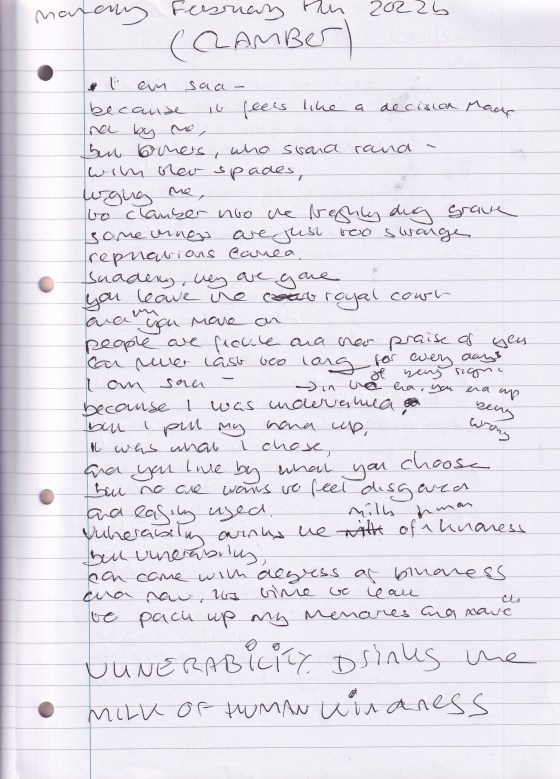 Monday February 20226
(CLAMBER)
I am sad -
because it feels like a decision made
not by me,
but others, who stand round -
with their spades,
urging me,
to clamber into the freshly dug grave
some things are just too strange
reputations earned.
Suddenly, they are gone
you leave the royal court
and you move on
people are fickle and their praise of you
can never last too long for every days
of being right
I am sad - → in the era, you end up
because I was undervalued, being
but I put my hand up, wrong
it was what I chose,
and you live by what you choose
but no one wants to feel disgarded
and easily used.
milk human
Vulnerability drinks the of kindness
but vulnerability,
can come with degress of blindness
and now, its time to leave
to pack up my memories and move
VULNERABILITY. DRINKS the
MILK OF HUMAN KINDNESS